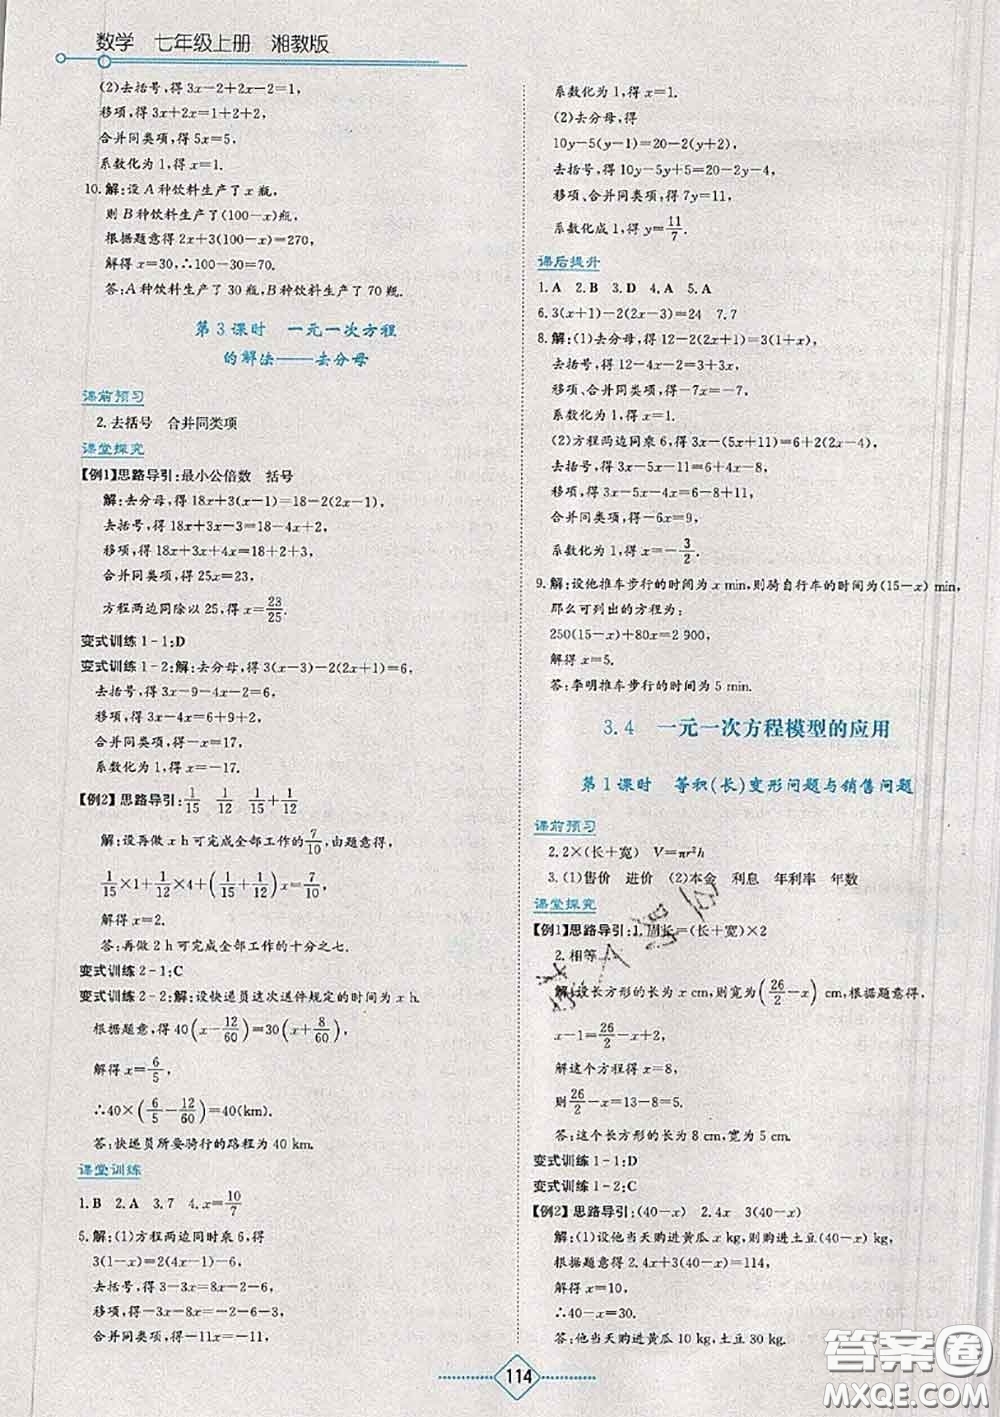 数学 七年级上册 湘教版
(2)去括号,得 3x-2+2x-2=1,
移项,得 3x+2x=1+2+2,
合并同类项,得 5x=5,
系数化为 1,得 x=1.
10.解:设 A 种饮料生产了 x 瓶,
则 B 种饮料生产了(100-x)瓶,
根据题意得 2x+3(100-x)=270,
解得 x=30,∴100-30=70.
答:A 种饮料生产了 30 瓶,B 种饮料生产了 70 瓶.
第 3 课时 一元一次方程
的解法——去分母
课前预习
2.去括号 合并同类项
课堂探究
【例1】思路导引:最小公倍数 括号
解:去分母,得 18x+3(x-1)=18-2(2x-1),
去括号,得 18x+3x-3=18-4x+2,
移项,得 18x+3x+4x=18+2+3,
合并同类项,得 25x=23,
方程两边同除以 25,得 x=23/25.
变式训练 1-1:D
变式训练 1-2:解:去分母,得 3(x-3)-2(2x+1)=6,
去括号,得 3x-9-4x-2=6,
移项,得 3x-4x=6+9+2,
合并同类项,得-x=17,
系数化为 1,得 x=-17.
【例2】思路导引:1/15 1/12 1/15+1/12
解:设再做 x h 可完成全部工作的7/10,由题意得,
1/15×1+1/12×4+(1/15+1/12)x=7/10,
解得 x=2.
答:再做 2 h 可完成全部工作的十分之七.
变式训练 2-1:C
变式训练 2-2:解:设快递员这次送件规定的时间为 x h.
根据题意,得 40(x-12/60)=30(x+8/60),
解得 x=6/5,
∴40×(6/5-12/60)=40(km).
答:快递员所要骑行的路程为 40 km.
课堂训练
1.B 2.A 3.7 4.x=10/7
5.解:(1)方程两边同时乘 6,得
3(1-x)=2(4x-1)-6,
去括号,得 3-3x=8x-2-6,
移项,得-3x-8x=-2-6-3,
合并同类项,得-11x=-11,
系数化为 1,得 x=1.
(2)去分母,得
10y-5(y-1)=20-2(y+2),
去括号,得 10y-5y+5=20-2y-4,
移项、合并同类项,得 7y=11,
系数化成 1,得 y=11/7.
课后提升
1.A 2.B 3.D 4.A 5.A
6.3(x+1)-2(2x-3)=24 7.7
8.解:(1)去分母,得 12-2(2x+1)=3(1+x),
去括号,得 12-4x-2=3+3x,
移项、合并同类项,得-7x=-7,
系数化为 1,得 x=1.
(2)方程两边同乘 6,得 3x-(5x+11)=6+2(2x-4),
去括号,得 3x-5x-11=6+4x-8,
移项,得 3x-5x-4x=6-8+11,
合并同类项,得-6x=9,
系数化为 1,得 x=-3/2.
9.解:设他推车步行的时间为 x min,则骑自行车的时间为(15-x) min,
那么可列出的方程为:
250(15-x)+80x=2 900,
解得 x=5.
答:李明推车步行的时间为 5 min.
3.4 一元一次方程模型的应用
第 1 课时 等积(长)变形问题与销售问题
课前预习
2.2×(长+宽) V=πr²h
3.(1)售价 进价 (2)本金 利息 年利率 年数
课堂探究
【例1】思路导引:1.周长=(长+宽)×2
2.相等
解:设长方形的长为 x cm,则宽为(26/2-x) cm,根据题意得,
x-1=26/2-x+2,
解这个方程得 x=8,
则26/2-x=13-8=5.
答:这个长方形的长为 8 cm,宽为 5 cm.
变式训练 1-1:D
变式训练 1-2:C
【例2】思路导引:(40-x) 2.4x 3(40-x)
解:(1)设他当天购进黄瓜 x kg,则购进土豆(40-x) kg,
根据题意,得 2.4x+3(40-x)=114,
解得 x=10.
∴40-x=30.
答:他当天购进黄瓜 10 kg,土豆 30 kg.
114
答案圈
MXQE.COM